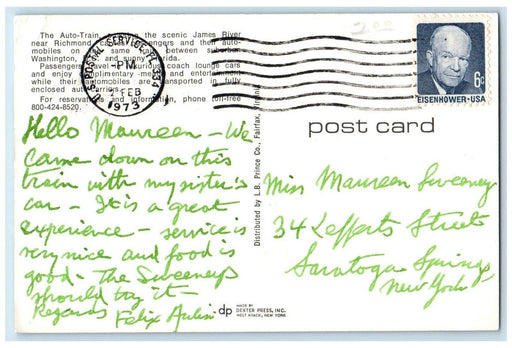 The Auto-Train, the scenic James River
near Richmond, and their auto-
mobiles on the same between suburban
Washington, and sunny
Passengers coach lounge cars
and enjoy complimentary and entertainment
while their automobiles are transported in fully
enclosed auto carriers.
For reservations and information, phone toll-free
800-424-8520.
U.S. POSTAL SERVICE
PM
2 FEB
1973
200
6c
EISENHOWER·USA
post card
Hello Maureen - We
came down on this
train with my sister's
car - It is a great
experience - service is
very nice and food is
good - the Sweeneys
should try it -
Regards Felix
Miss Maureen Sweeney
34 Lefferts Street
Saratoga Springs
New York
Distributed by L.B. Prince Co., Fairfax, Virginia
dp
MADE BY
DEXTER PRESS, INC.
WEST NYACK, NEW YORK